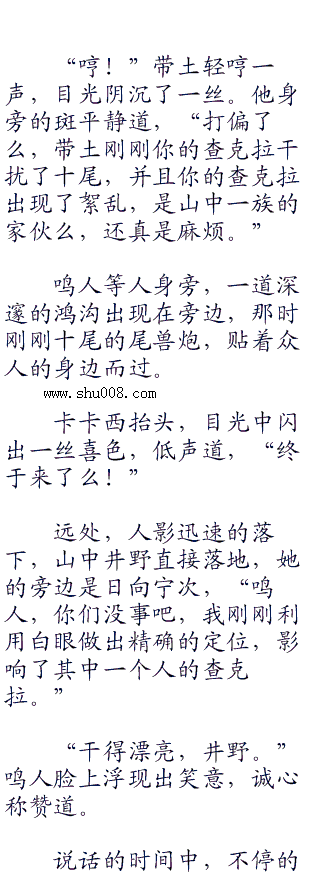 “哼！”带土轻哼一
声，目光阴沉了一丝。他身
旁的斑平静道，“打偏了
么，带土刚刚你的查克拉干
扰了十尾，并且你的查克拉
出现了絮乱，是山中一族的
家伙么，还真是麻烦。”
鸣人等人身旁，一道深
邃的鸿沟出现在旁边，那时
刚刚十尾的尾兽炮，贴着众
人的身边而过。
www.shu008.com
卡卡西抬头，目光中闪
出一丝喜色，低声道，“终
于来了么！”
远处，人影迅速的落
下，山中井野直接落地，她
的旁边是日向宁次，“鸣
人，你们没事吧，我刚刚利
用白眼做出精确的定位，影
响了其中一个人的查克
拉。”
“干得漂亮，井野。”
鸣人脸上浮现出笑意，诚心
称赞道。
说话的时间中，不停的